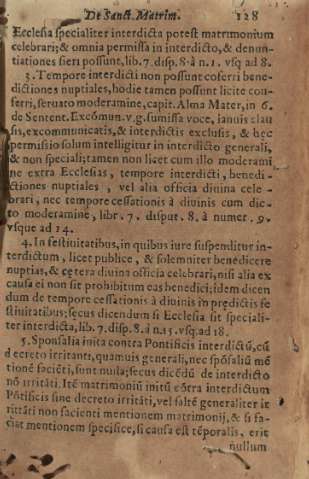 De Sanct. Matrim. 128
Ecclesia specialiter interdicta potest matrimonium
celebrari; & omnia permissa in interdicto, & denun-
tiationes fieri possunt, lib. 7. disp. 8. à n. 1. vsq ad 8.
3. Tempore interdicti non possunt coferri bene-
dictiones nuptiales, hodie tamen possunt licite con-
ferri, seruato moderamine, capit. Alma Mater, in 6.
de Sentent. Excómun. v.g. sumissa voce, ianuis clau
sis, excommunicatis, & interdictis exclusis, & hec
permissio solum intelligitur in interdicto generali,
& non speciali; tamen non licet cum illo moderami
ne extra Ecclesias, tempore interdicti, benedi-
ctiones nuptiales, vel alia officia diuina cele-
brari, nec tempore cessationis à diuinis cum dic-
to moderamine, libr. 7. disput. 8. à numer. 9.
vsque ad 14.
4. In festiuitatibus, in quibus iure suspenditur in-
terdictum, licet publice, & solemniter benedicere
nuptias, & cętera diuina officia celebrari, nisi alia ex
causa ei non sit prohibitum eas benedici; idem dicen
dum de tempore cessationis à diuinis in prędictis fe
stiuitatibus; secus dicendum si Ecclesia sit speciali-
ter interdicta, lib. 7. disp. 8. à n. 15. vsq. ad 18.
5. Sponsalia inita contra Pontificis interdictū, cū
decreto irritanti, quamuis generali, nec spōsaliū mē
tionē faciēti, sunt nulla; secus dicēdū de interdicto
nō irritāti. Itē matrimoniū initū cōtra interdictum
Pōtificis sine decreto irritāti, vel saltē generaliter ir
ritāti non facienti mentionem matrimonij, & si fa-
ciat mentionem specifice, si causa est tēporalis, erit
nullum